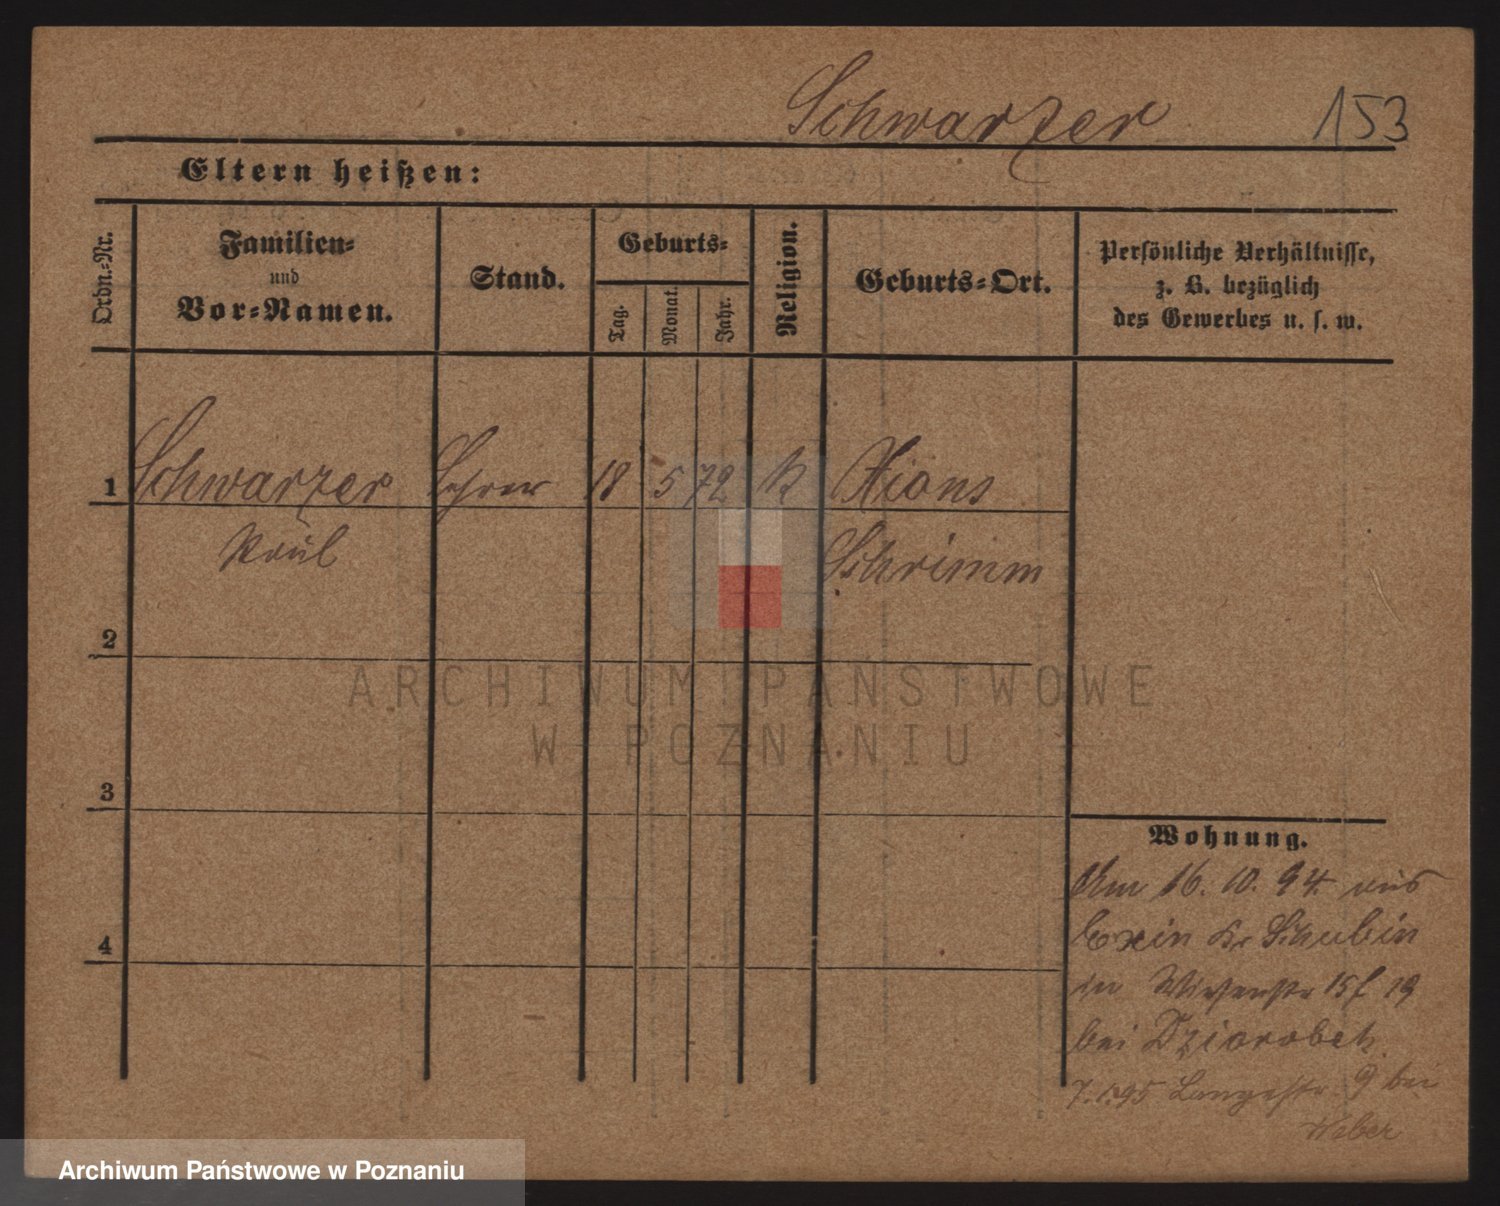 Schwarzer 153
Eltern heißen:
Ordn.-Nr.
Familien-
und
Vor-Namen.
Stand.
Geburts-
Tag.
Monat.
Jahr.
Religion.
Geburts-Ort.
Persönliche Verhältnisse,
z. B. bezüglich
des Gewerbes u. s. w.
1 Schwarzer Lehrer 18 5 72 k Xions
Paul Schrimm
2
3
4
Wohnung.
Am 16. 10. 94 aus
Exin Kr Schubin
in Wiesenstr 15/19
bei
7.1.95 Langestr. 9 bei
Weber
ARCHIWUM PAŃSTWOWE
W POZNANIU
Archiwum Państwowe w Poznaniu